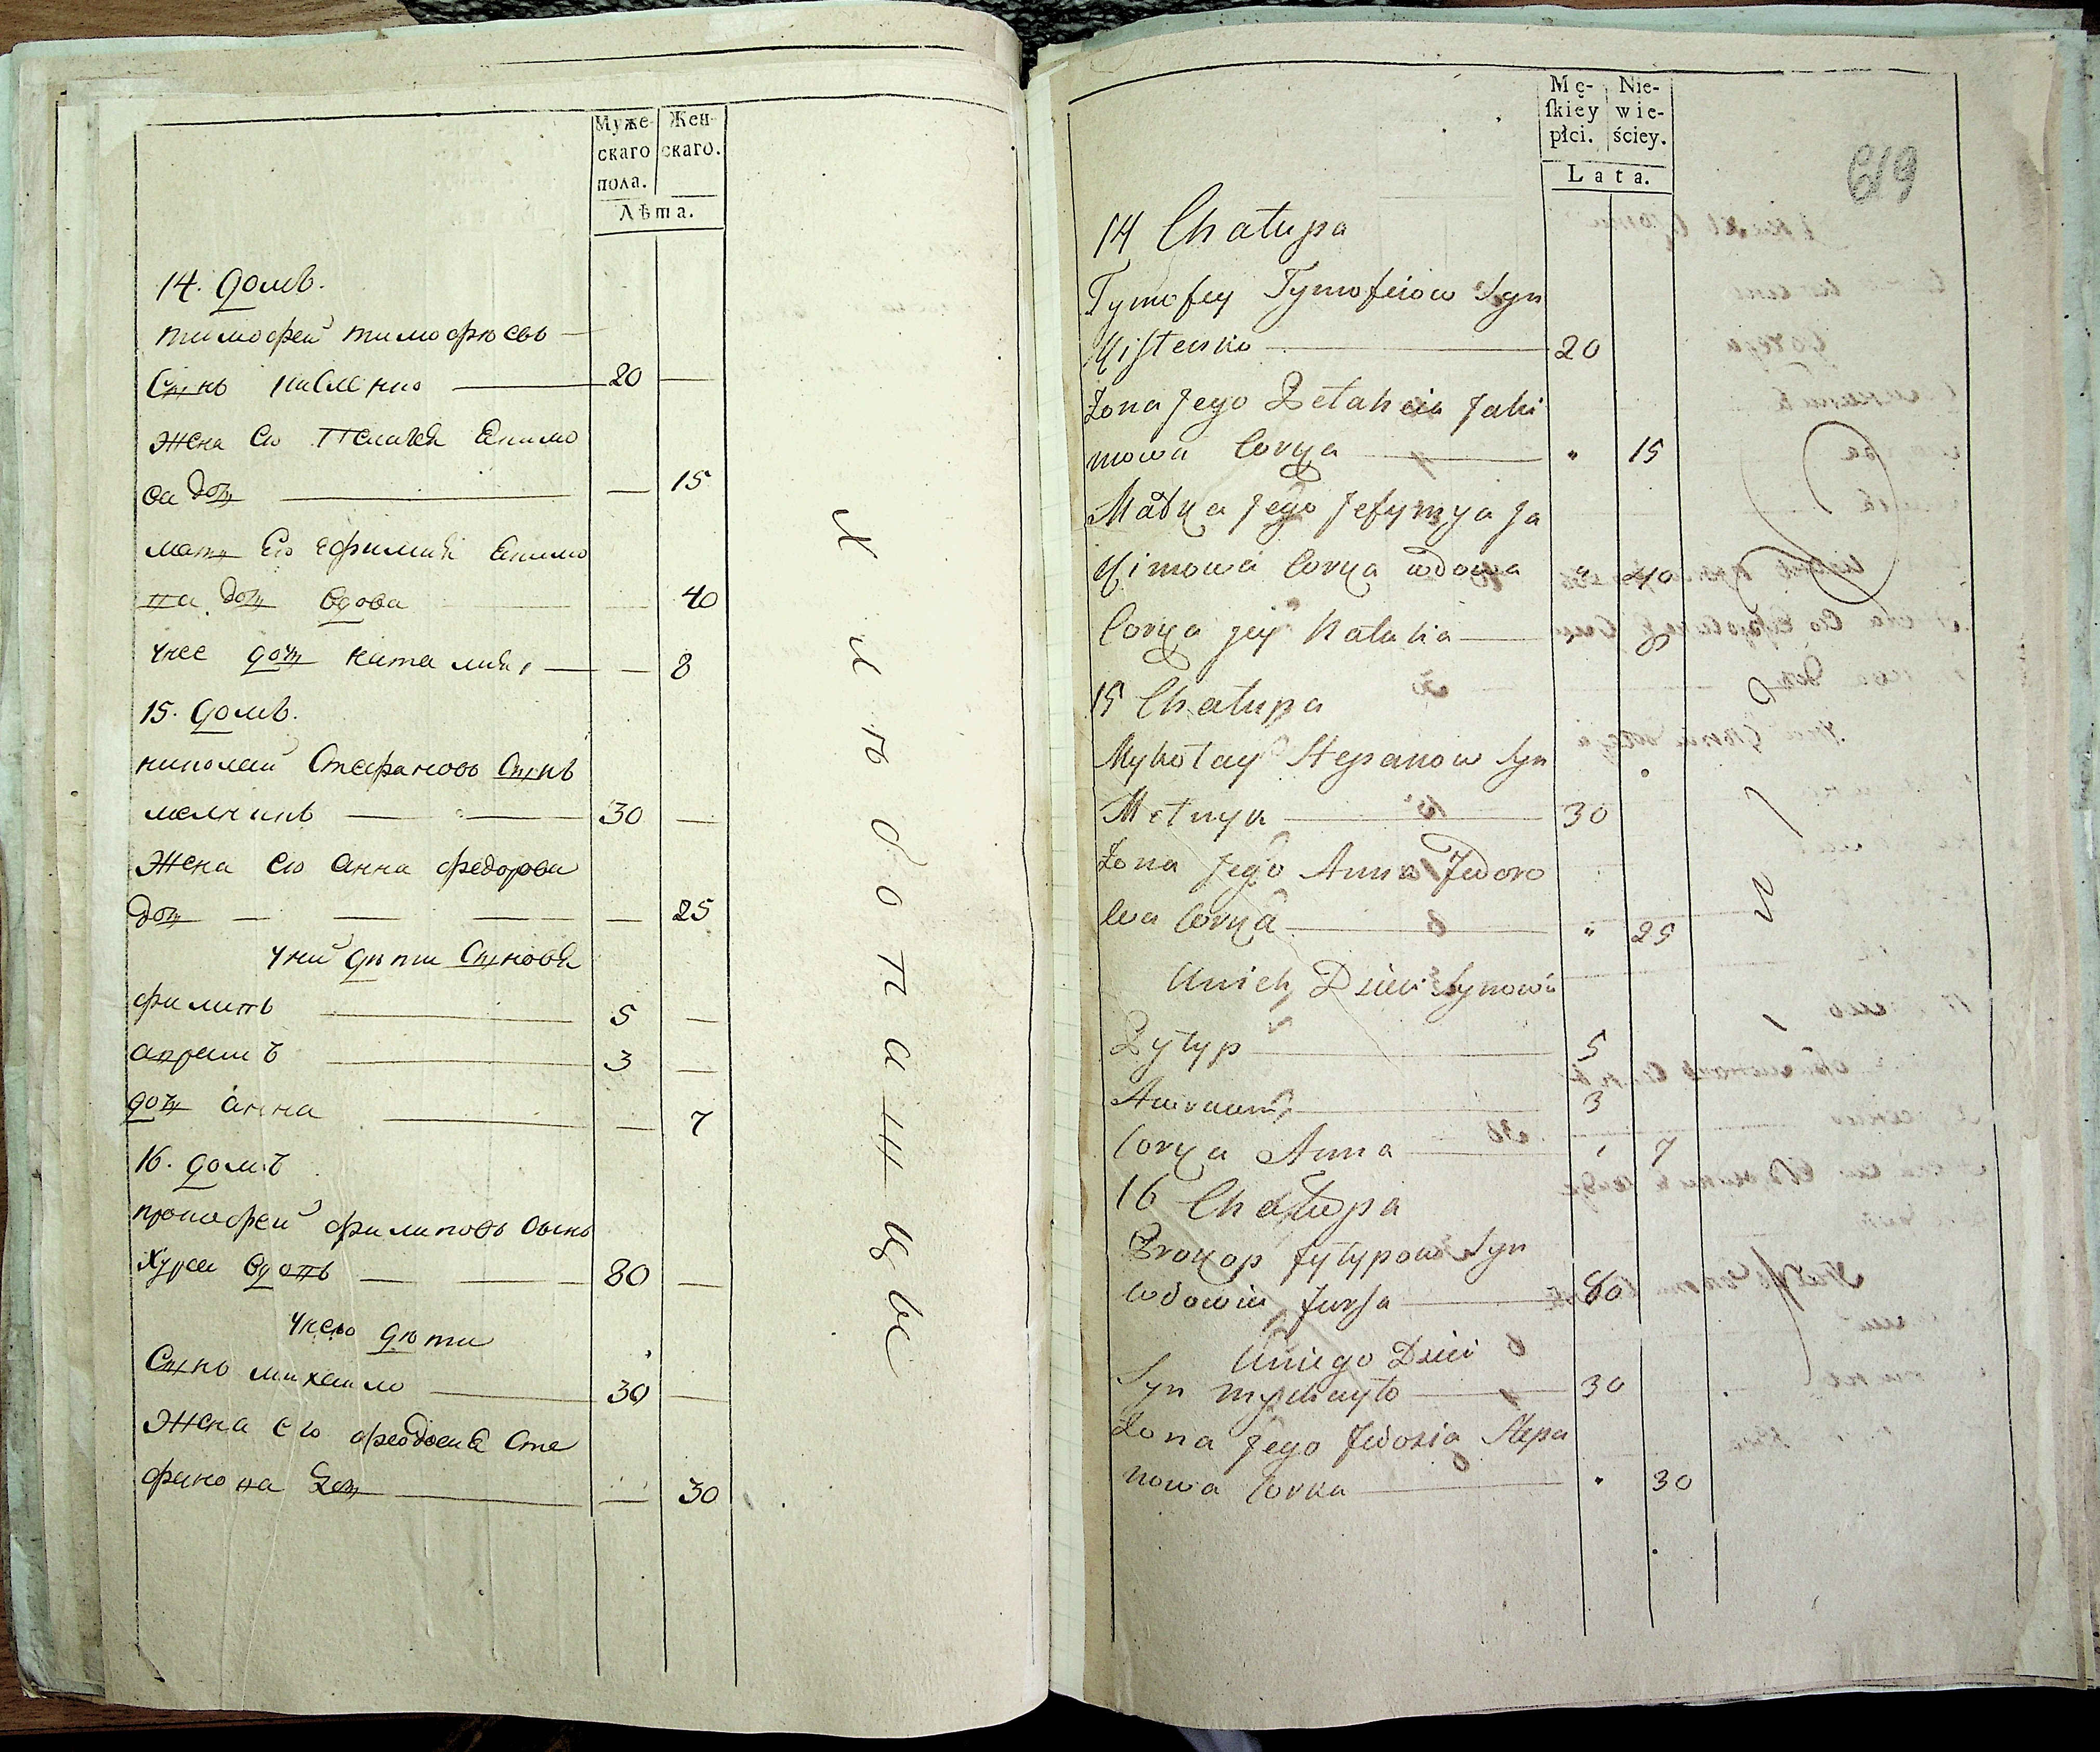 Муже- Жен-
скаго скаго.
пола.
Лѣта.
14. домъ.
тимофей тимофѣевъ
Сынъ кисленко 20
жена его Пелагея Екимо
ва дочь 15
мать Его ефимия Екимо
на дочь вдова 40
унее дочь наталия 8
15. домъ.
николай Стефановъ Сынъ
мелникъ 30
жена его анна федорова
дочь 25
уних дѣти Сыновя
филипъ 5
авраамъ 3
дочь анна 7
16. домъ
прокофей филиповъ сынъ
вдовъ 80
унего дѣти
Сынъ михаило 30
жена его феодосия Сте
фано на дочь 30
хлѣбопашцы
Mę- Nie-
ſkiey wie-
płci. ściey.
Lata.
619
14 Chałupa
Tymofey Tymofieiow Syn
Kisłenko 20
Żona Jego Pełaheia Jaki
mowa Corka 15
Matka Jego Jefymya Ja
kimowa Corka wdowa 40
Corka jey Natalia 8
15 Chałupa
Mykołay Stepanow Syn
Melnyk 30
Żona Jego Anna Fedoro
wa Corka 25
Unich Dzieci Synowie
Pyłyp 5
3
Corka Anna 7
16 Chałupa
Prokop Fyłypow Syn
wdowiec 80
Uniego Dzieci
Syn Mychayło 30
Żona Jego Fedosia Stepa
nowa Corka 30